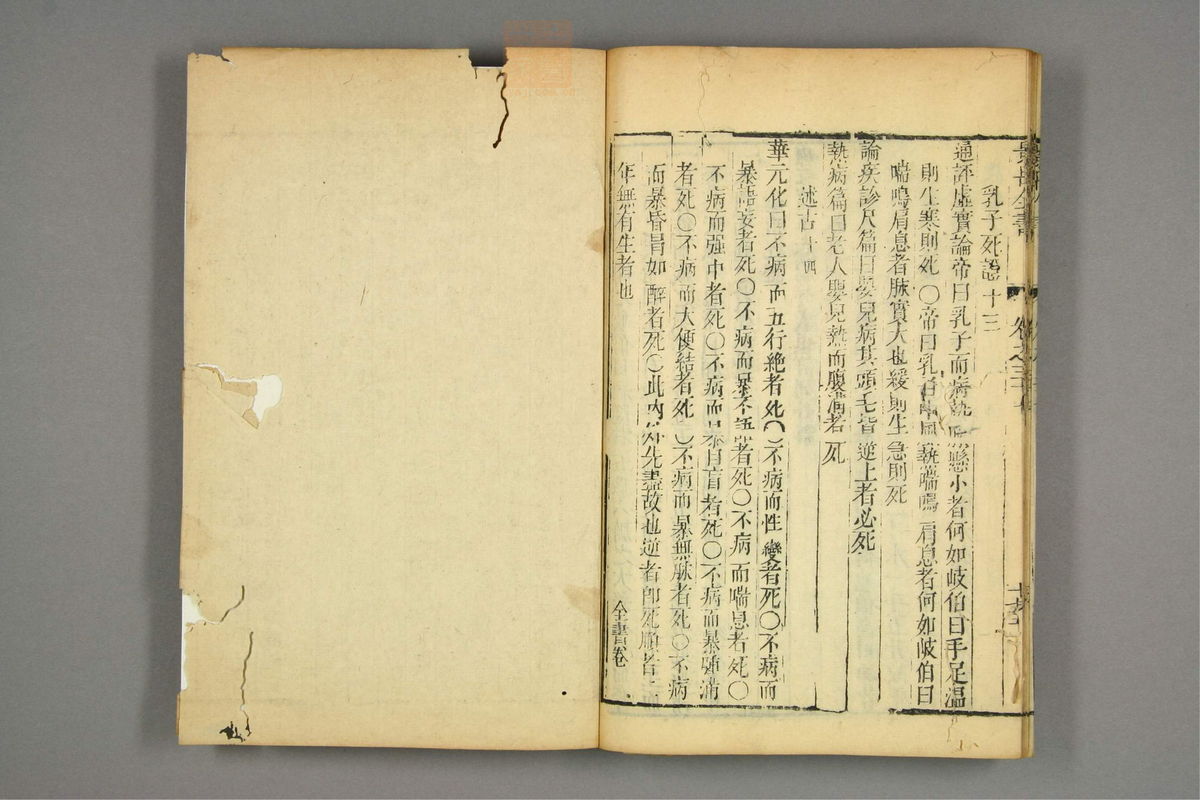 乳子死證十三
通評虛實論帝曰乳子而病熱脉懸小者何如岐伯曰手足溫
則生寒則死○帝曰乳子中風熱喘鳴肩息者何如岐伯曰
喘鳴肩息者脉實大也緩則生急則死
論疾診尺篇曰嬰兒病其頭毛皆逆上者必死
熱病篇曰老人嬰兒熱而腹滿者死
述古十四
華元化曰不病而五行絶者死○不病而性變者死○不病而
暴語妄者死○不病而暴不語者死○不病而喘息者死○
不病而强中者死○不病而暴目盲者死○不病而暴腫滿
者死○不病而大便結者死○不病而暴無脉者死○不病
而暴昏冐如醉者死○此内外先盡故也逆者卽死順者二
年無有生者也
全書卷